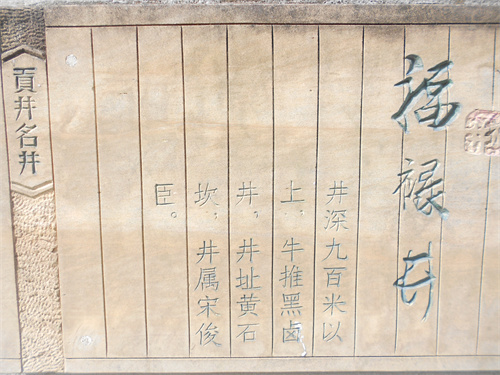 福禄井
井深九百米以
上，牛推黑卤
井，井址黄石
坎，井属宋俊
臣。
貢井名井